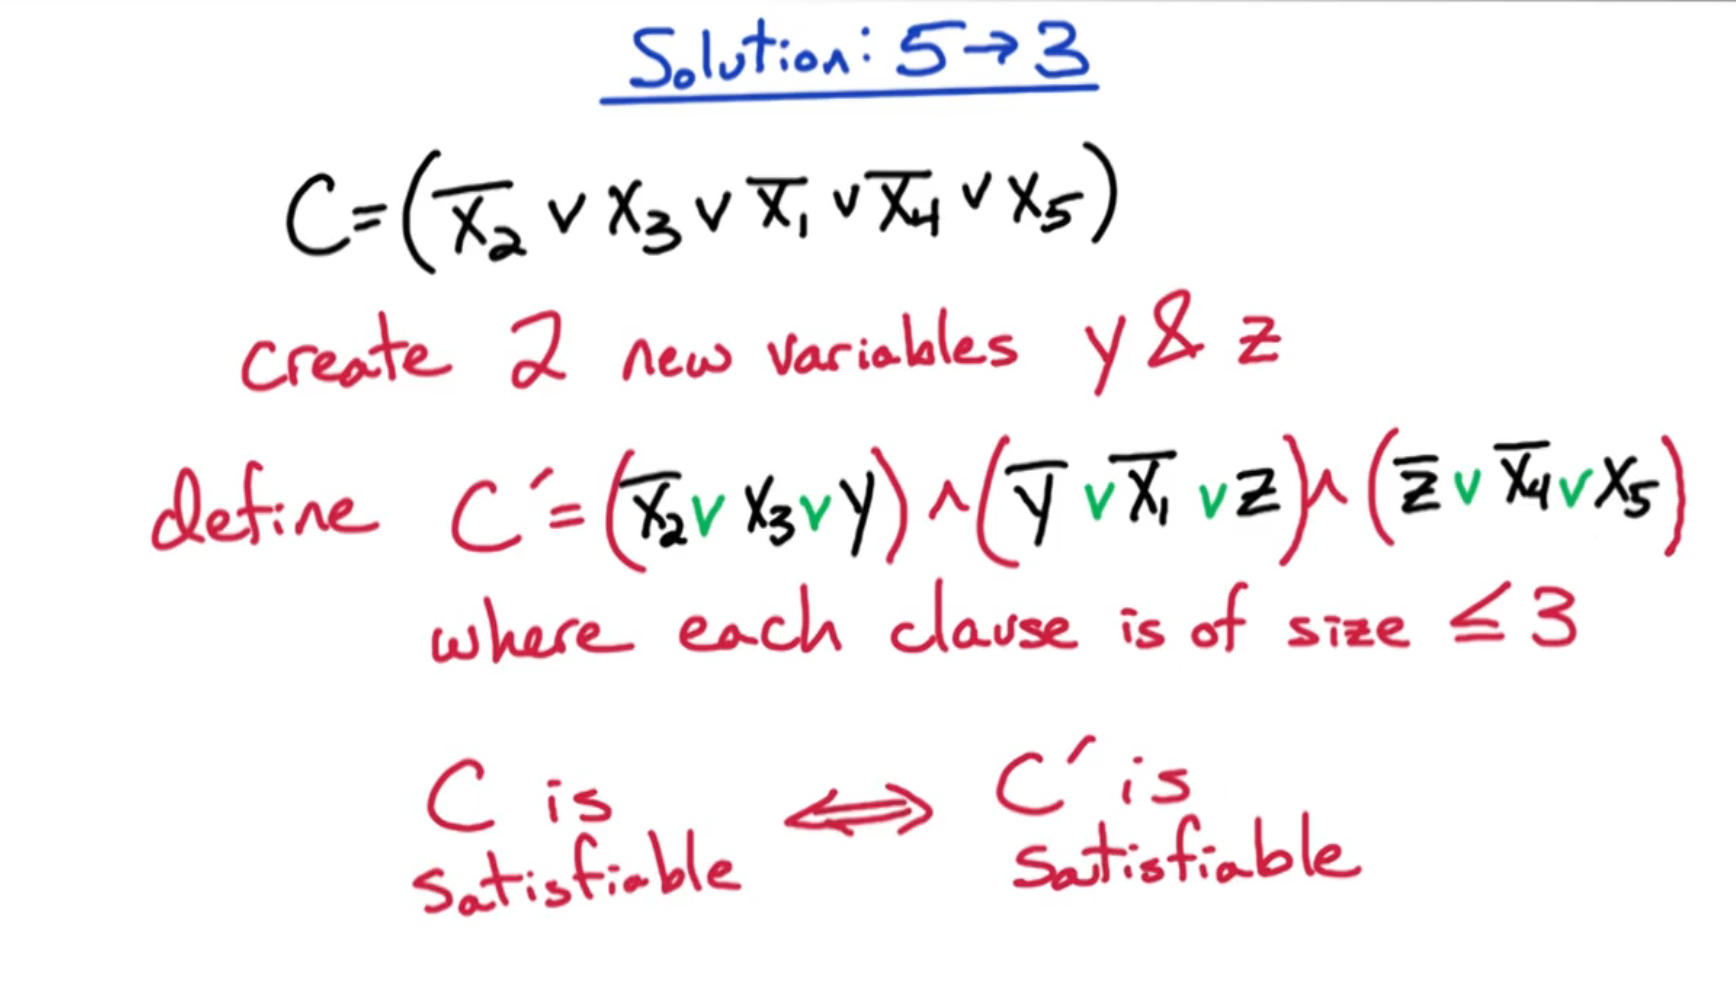 Solution: 5→3
C=(x̅₂ ∨ x₃ ∨ x̅₁ ∨ x̅₄ ∨ x₅)
create 2 new variables y & z
define C′=(x̅₂ ∨ x₃ ∨ y) ∧ (y̅ ∨ x̅₁ ∨ z) ∧ (z̅ ∨ x̅₄ ∨ x₅)
where each clause is of size ≤ 3
C is ⟺ C′ is
satisfiable satisfiable